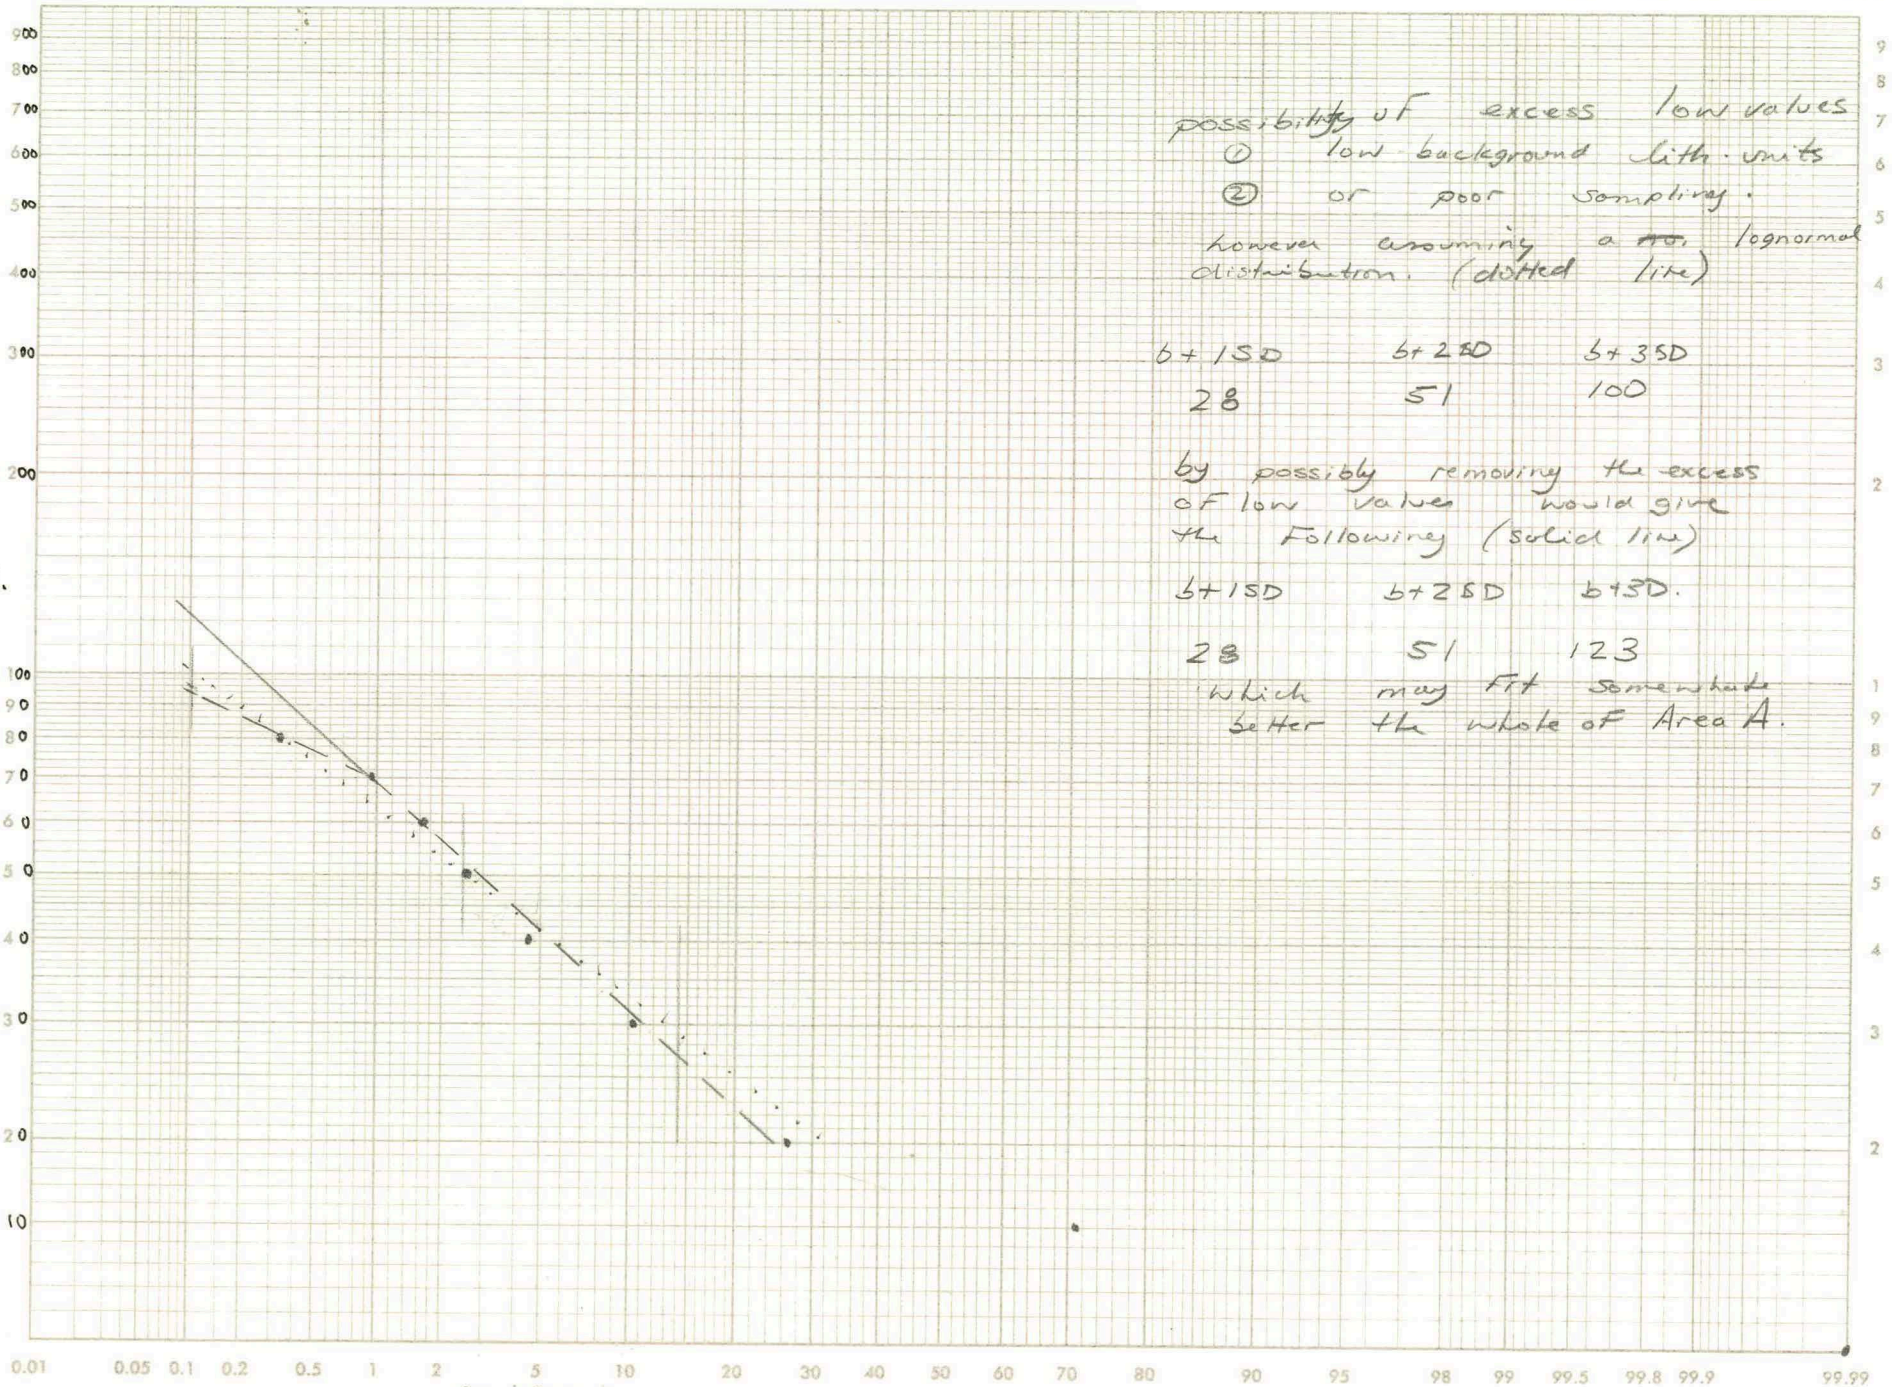 900
800
700
600
500
400
300
200
100
90
80
70
60
50
40
30
20
10
possibility of excess low values
① low background lith. units
② or poor sampling.
however assuming a lognormal
distribution. (dotted line)
b+1SD b+2SD b+3SD
28 51 100
by possibly removing the excess
of low values would give
the Following (solid line)
b+1SD b+2SD b+3D.
28 51 123
which may Fit somewhate
better the whole of Area A.
9
8
7
6
5
4
3
2
1
9
8
7
6
5
4
3
2
0.01 0.05 0.1 0.2 0.5 1 2 5 10 20 30 40 50 60 70 80 90 95 98 99 99.5 99.8 99.9 99.99